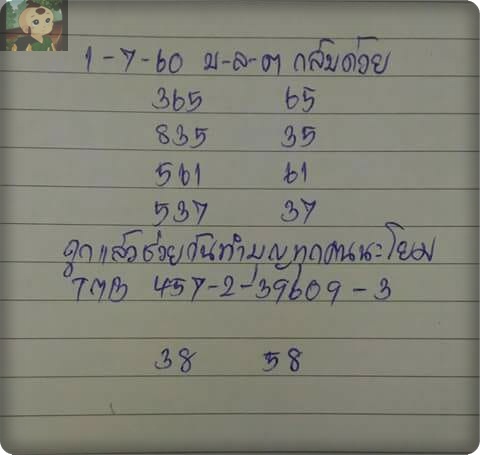 1-7-60 บ-ล-ต กลับด้วย
365 65
835 35
561 61
537 37
ถูกแล้วช่วยกันทำบุญทุกคนนะโยม
TMB 457-2-39609-3
38 58